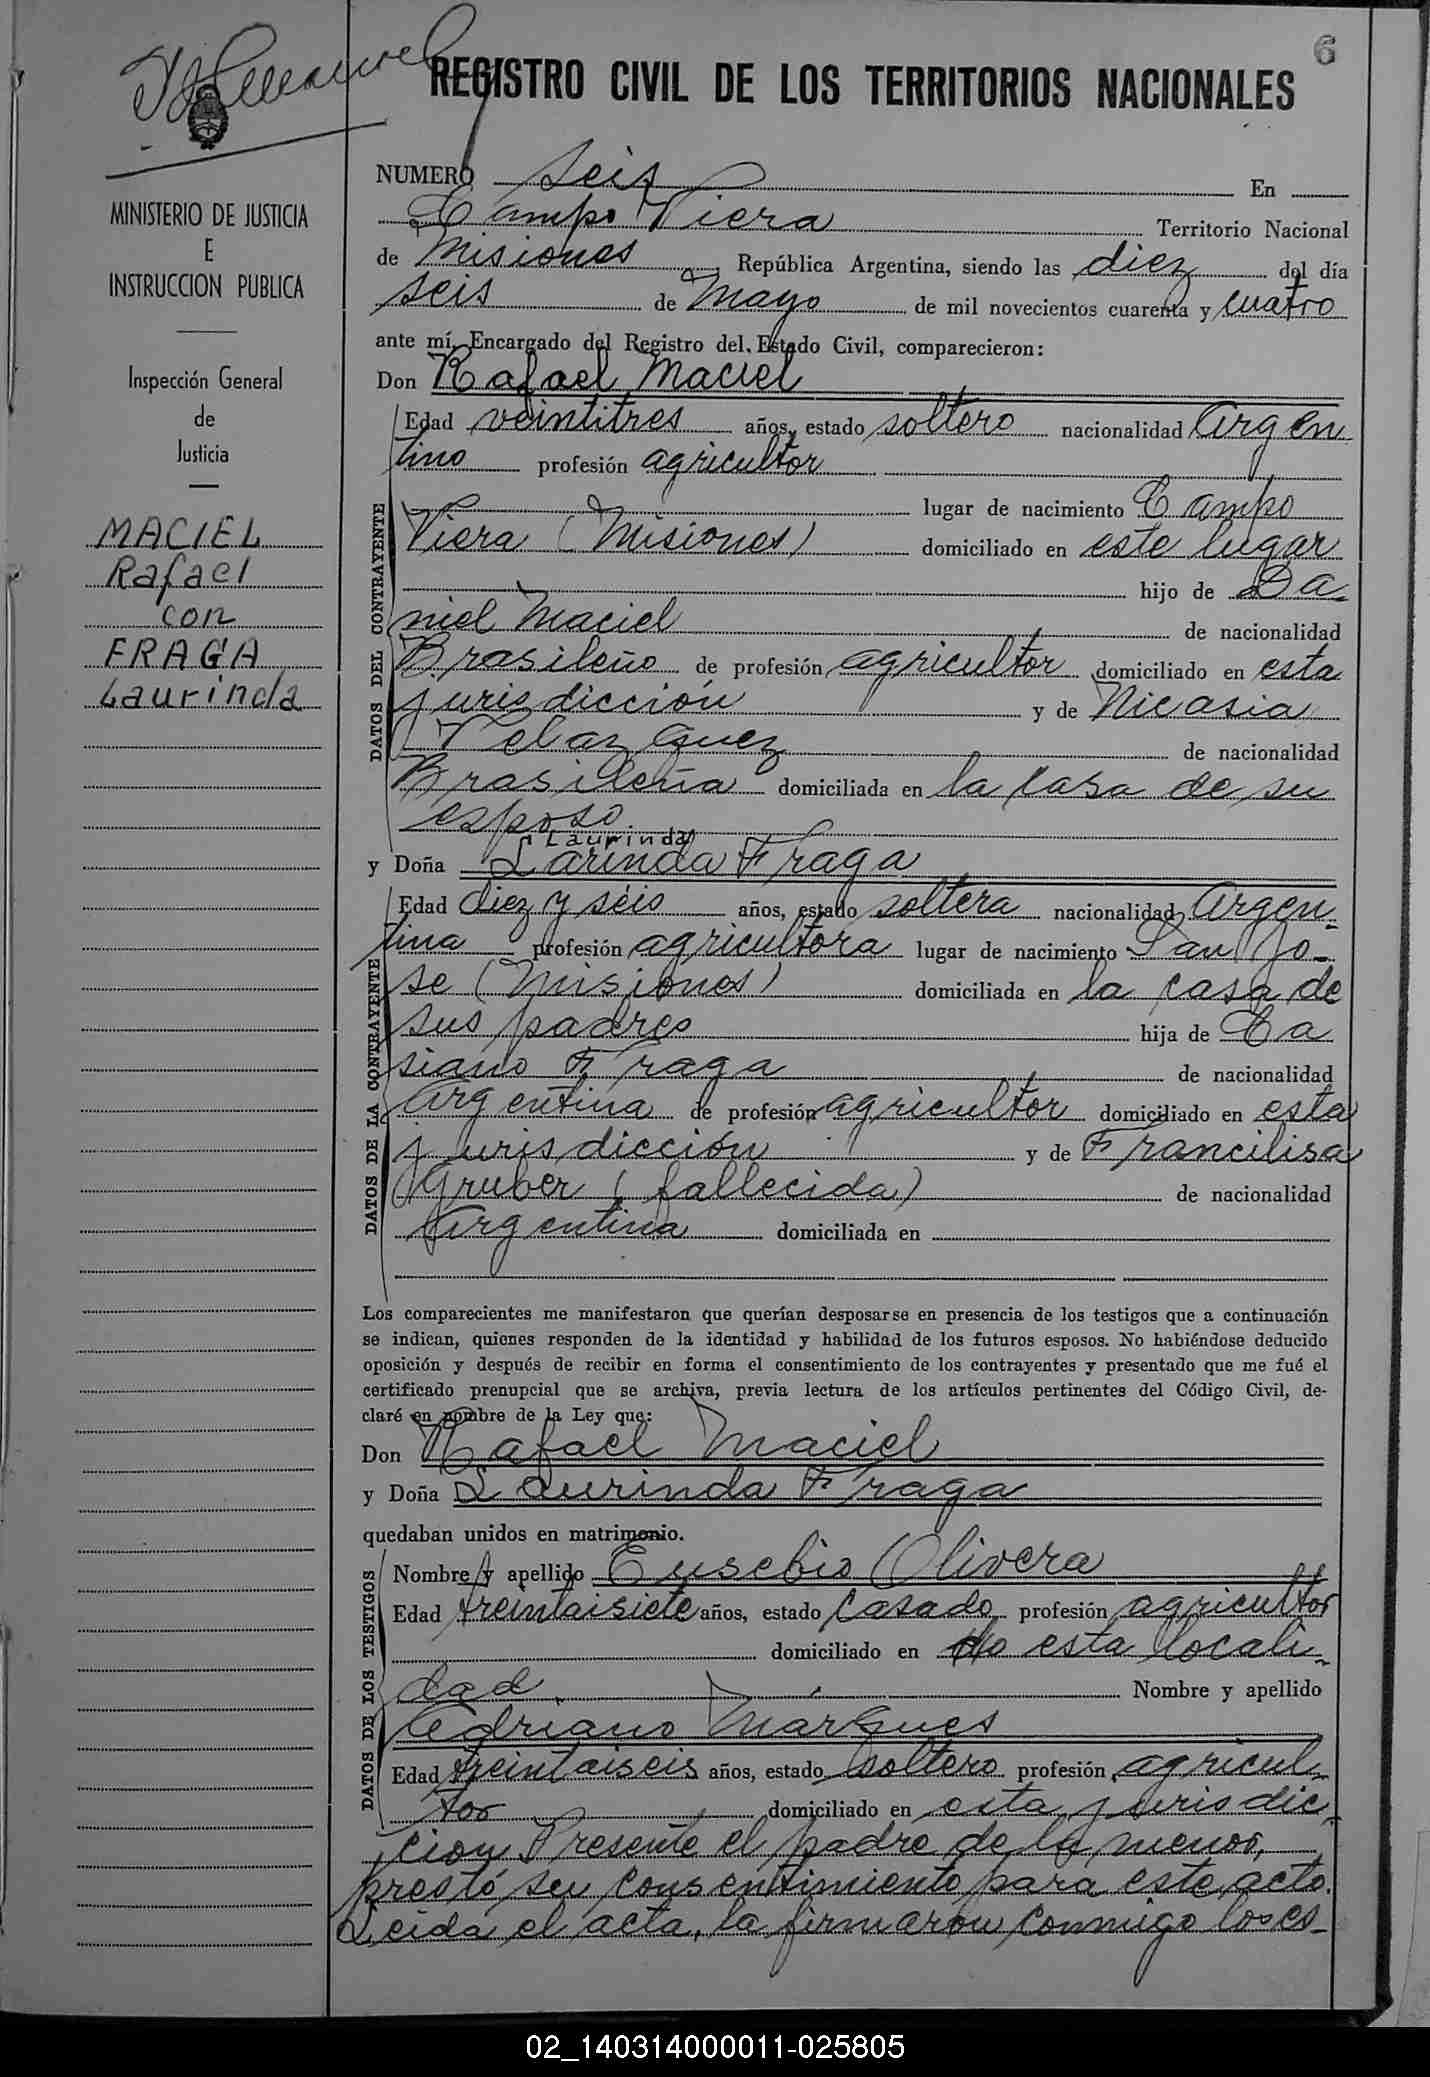 6
REGISTRO CIVIL DE LOS TERRITORIOS NACIONALES
MINISTERIO DE JUSTICIA
E
INSTRUCCION PUBLICA
Inspección General
de
Justicia
MACIEL
Rafael
con
FRAGA
Laurinda
NUMERO seis En
Campo Viera Territorio Nacional
de Misiones, República Argentina, siendo las diez del día
seis de Mayo de mil novecientos cuarenta y cuatro
ante mí, Encargado del Registro del Estado Civil, comparecieron:
Don Rafael Maciel
DATOS DEL CONTRAYENTE
Edad veintitres años, estado soltero nacionalidad Argen
tino profesión agricultor
lugar de nacimiento Campo
Viera (Misiones) domiciliado en este lugar
hijo de Da-
niel Maciel de nacionalidad
Brasileño de profesión agricultor domiciliado en esta
jurisdicción y de Nicasia
Velazquez de nacionalidad
Brasileña domiciliada en la casa de su
esposo.
Laurinda
y Doña Larinda Fraga
DATOS DE LA CONTRAYENTE
Edad diez y séis años, estado soltera nacionalidad Argen-
tina profesión agricultora lugar de nacimiento San Jo-
se (Misiones) domiciliada en la casa de
sus padres hija de Ca
siano Fraga de nacionalidad
Argentina de profesión agricultor domiciliado en esta
jurisdicción y de Francilisa
Gruber (fallecida) de nacionalidad
Argentina domiciliada en
Los comparecientes me manifestaron que querían desposarse en presencia de los testigos que a continuación
se indican, quienes responden de la identidad y habilidad de los futuros esposos. No habiéndose deducido
oposición y después de recibir en forma el consentimiento de los contrayentes y presentado que me fué el
certificado prenupcial que se archiva, previa lectura de los artículos pertinentes del Código Civil, de-
claré en nombre de la Ley que:
Don Rafael Maciel
y Doña Laurinda Fraga
quedaban unidos en matrimonio.
DATOS DE LOS TESTIGOS
Nombre y apellido Eusebio Olivera
Edad treintaisiete años, estado casado profesión agricultor
domiciliado en esta locali-
dad Nombre y apellido
Adriano Márques
Edad treintaiseis años, estado soltero profesión agricul-
tor domiciliado en esta jurisdic-
cion Presente el padre de la menor,
prestó su consentimiento para este acto.
Leida el acta, la firmaron conmigo los es-
02_140314000011-025805